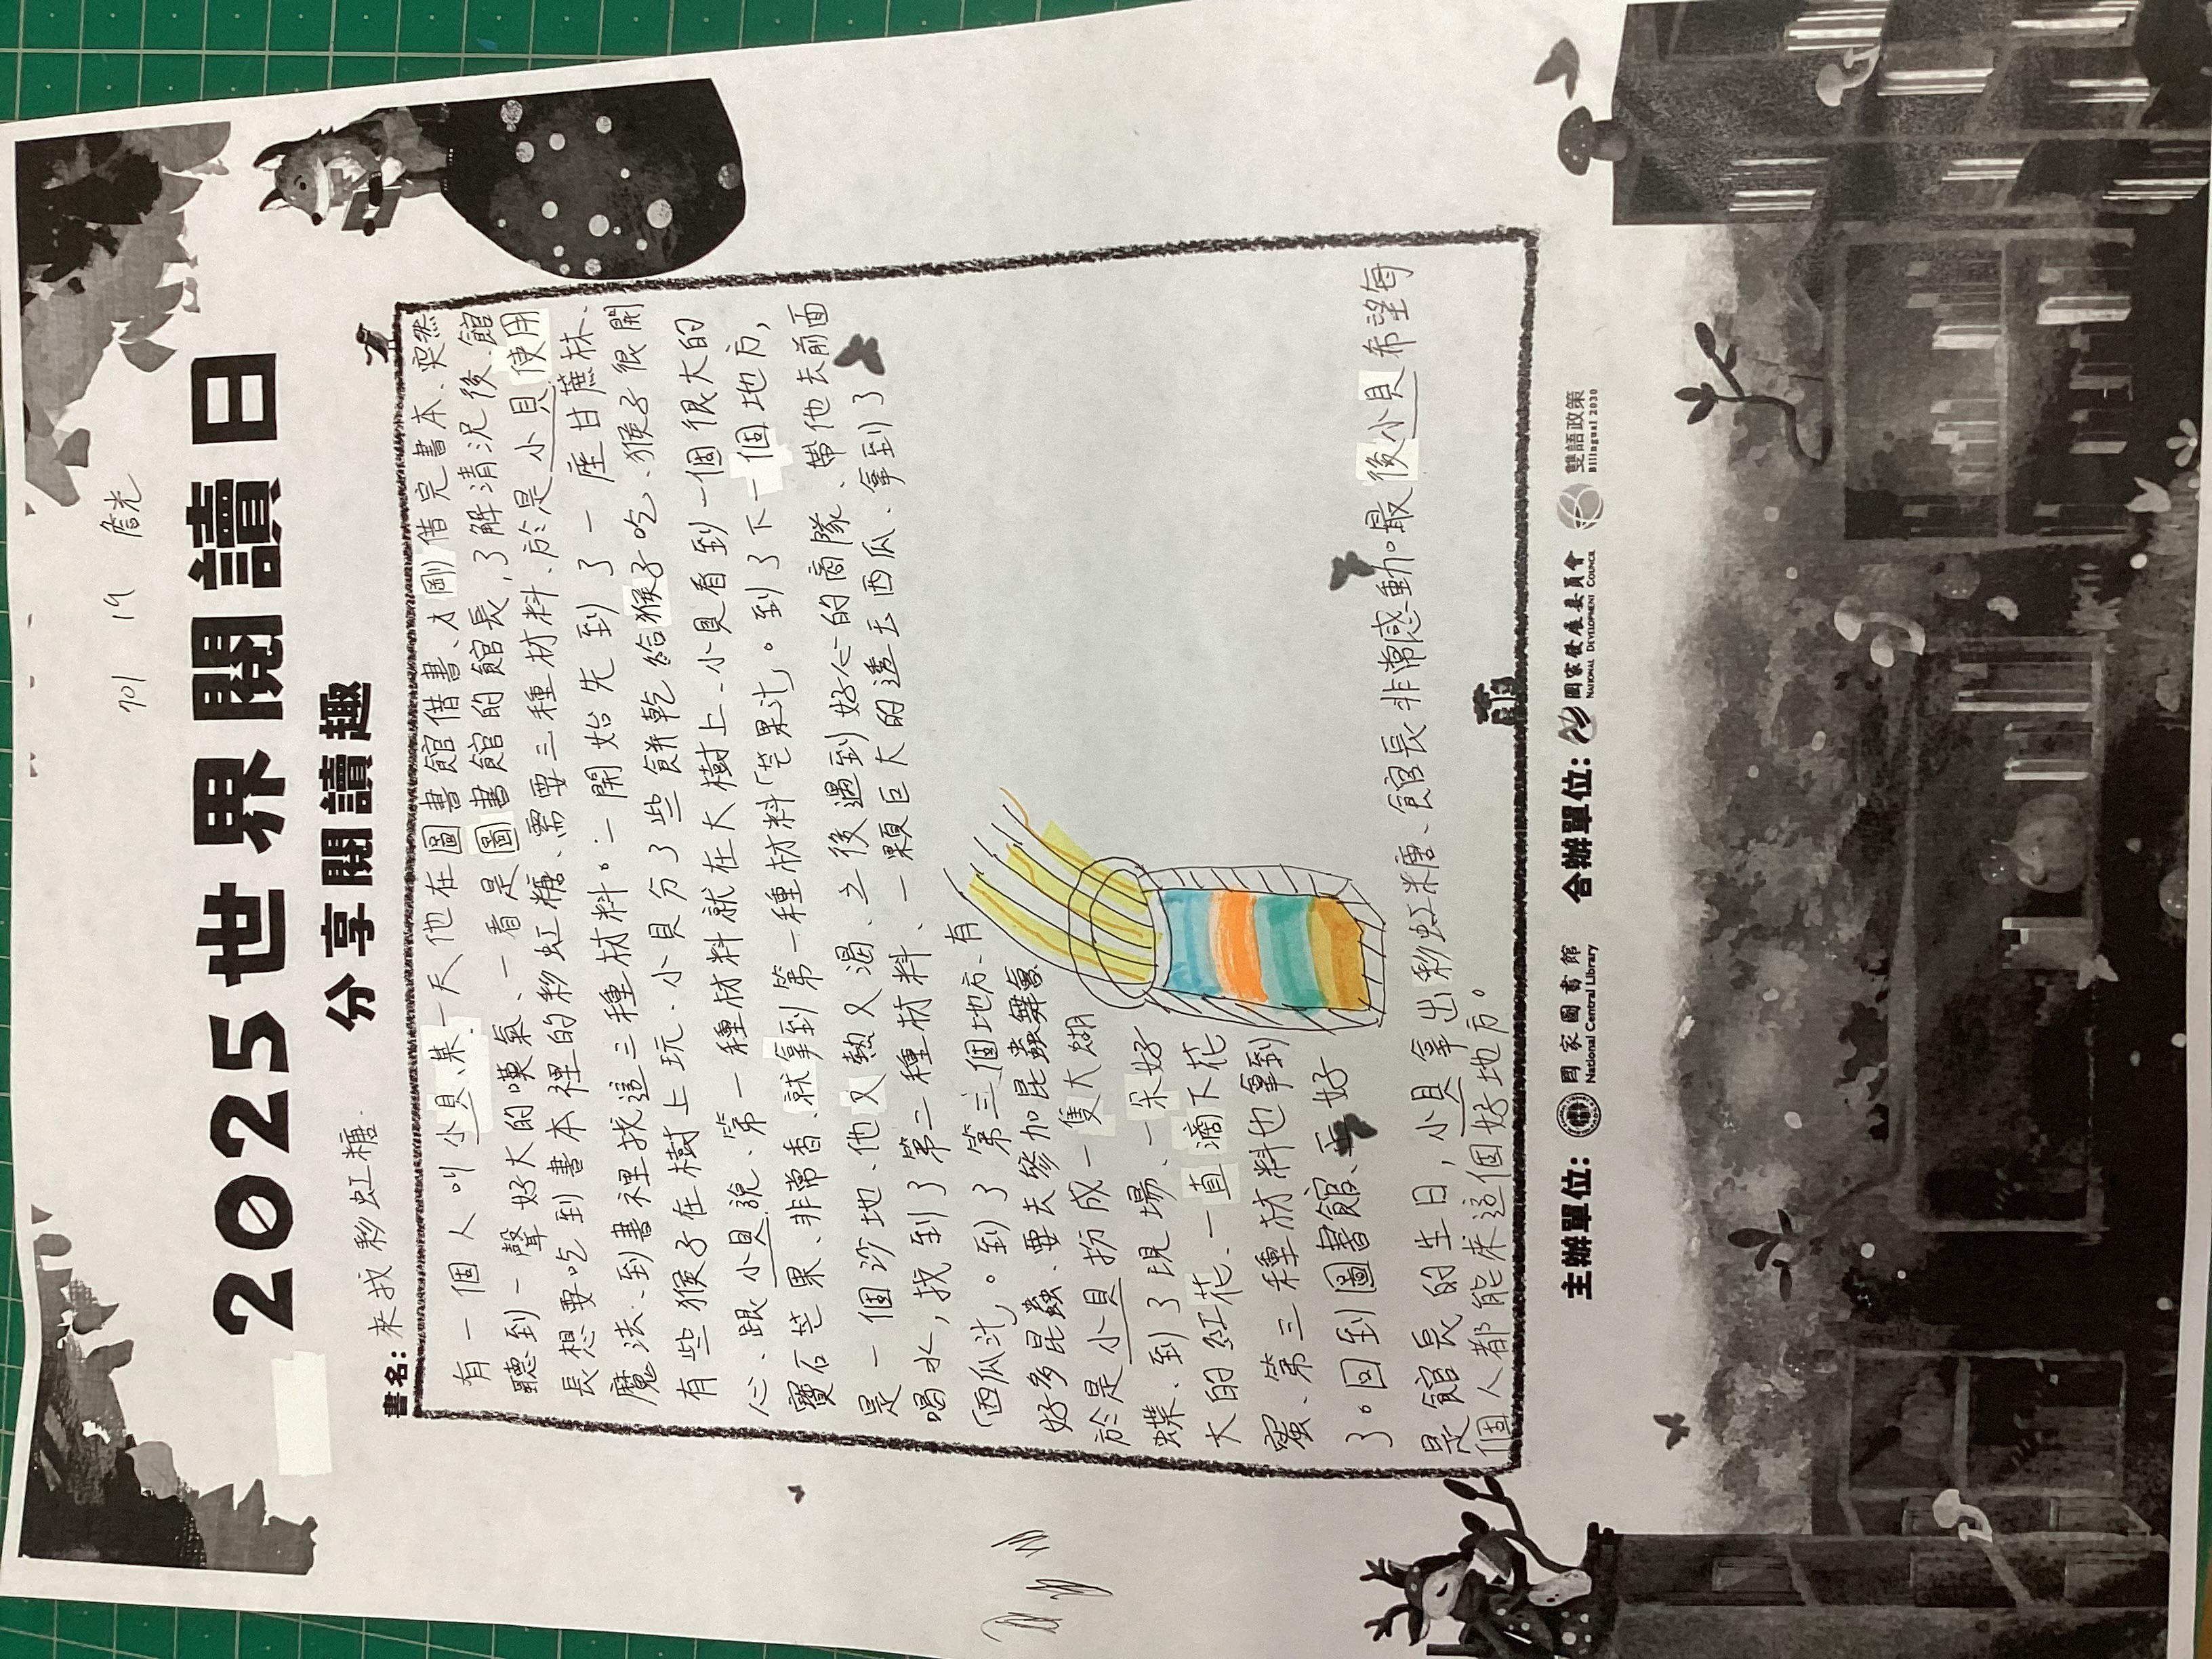 701 19 詹光
2025世界閱讀日
分享閱讀趣
書名: 來找彩虹糖.
有一個人叫小貝、某一天他在圖書館借書、才剛借完書本、突然
聽到一聲好大的嘆氣、一看是圖書館的館長,了解清況後、館
長想要吃到書本裡的彩虹糖、需要三種材料、於是小貝使用
魔法、到書裡找這三種材料。一開始先到了一座甘蔗林、
有些猴子在樹上玩、小貝分了些餅乾給猴子吃、猴子很開
心、跟小貝說、第一種材料就在大樹上、小貝看到一個很大的
寶石芒果、非常香、就拿到第一種材料「芒果汁」。到了下一個地方,
是一個沙地、他又熱又渴、之後遇到好心的商隊、帶他去前面
喝水,找到了第二種材料、一顆巨大的透玉西瓜、拿到了
「西瓜汁」。到了第三個地方、有
好多昆蟲、要去參加昆蟲舞會
於是小貝扮成一隻大蝴
蝶、到了現場、一朵好
大的紅花、一直滴下花
蜜、第三種材料也拿到
了。回到圖書館、正好
是館長的生日,小貝拿出彩虹糖、館長非常感動。最後小貝希望每
個人都能來這個好地方。
主辦單位: 國家圖書館 National Central Library 合辦單位: 國家發展委員會 NATIONAL DEVELOPMENT COUNCIL 雙語政策 Bilingual 2030